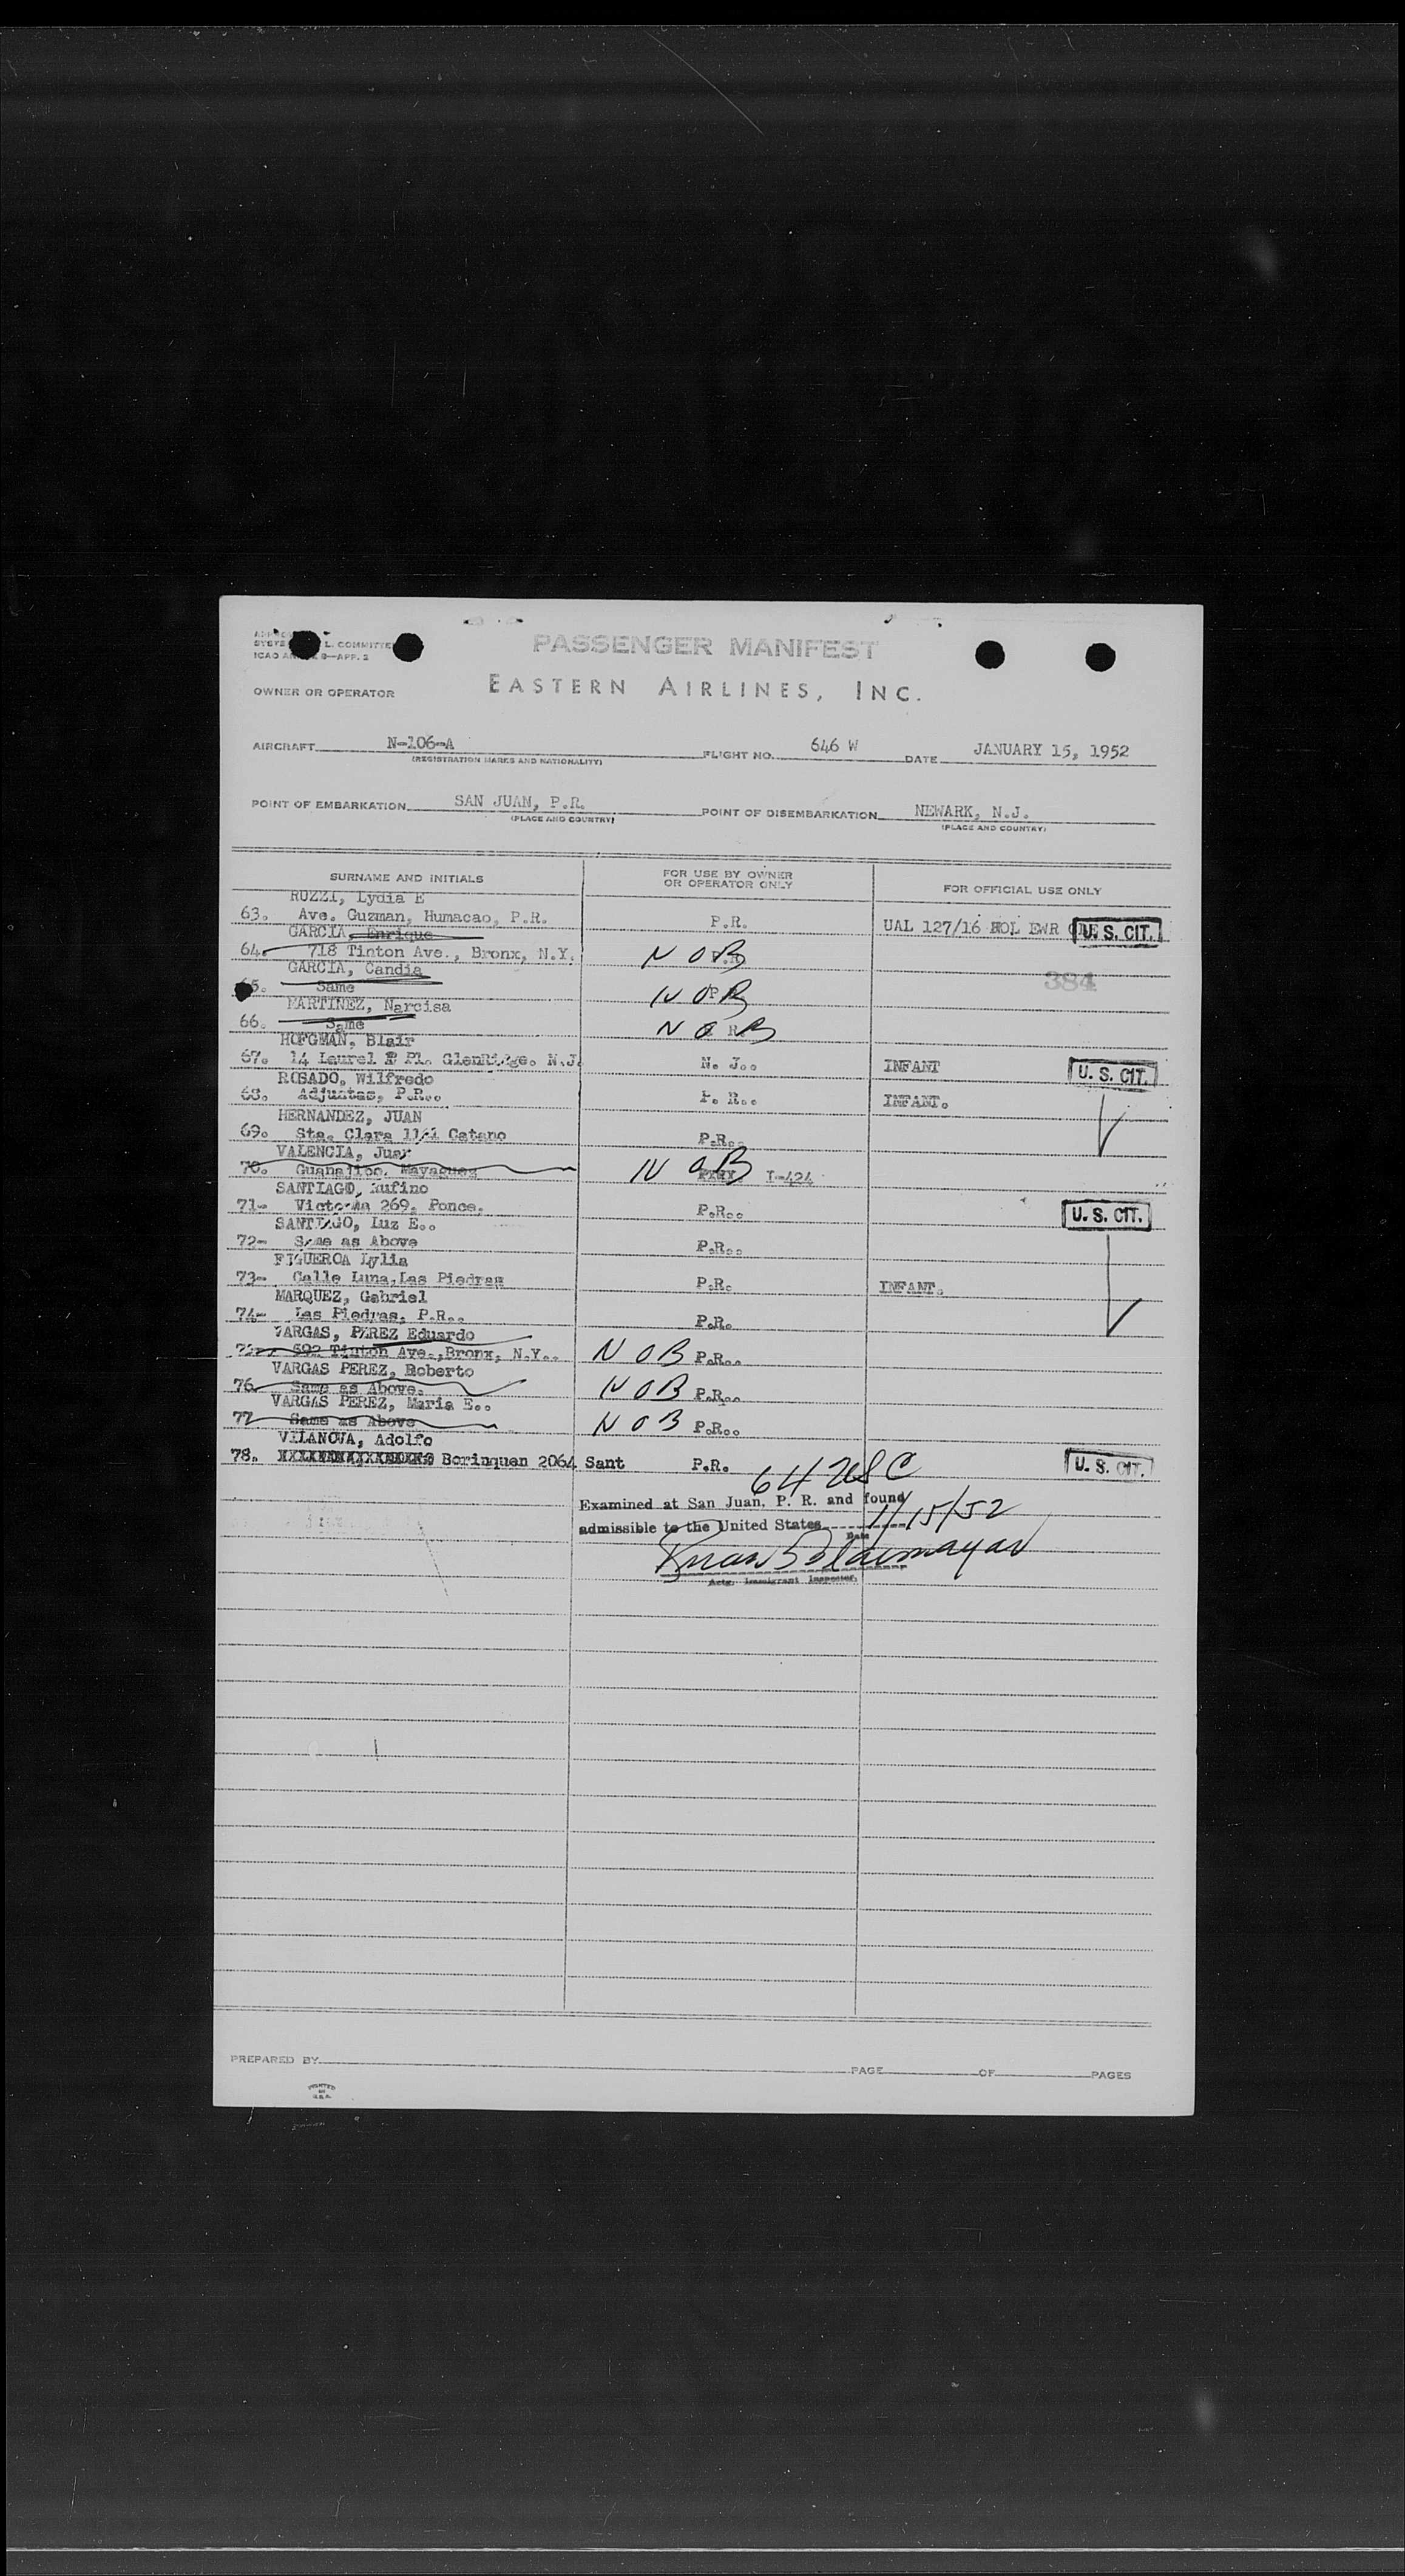 PASSENGER MANIFEST
L. COMMITTEE
ICAO 9—APP. 2
EASTERN AIRLINES, INC.
OWNER OR OPERATOR
AIRCRAFT N-106-A FLIGHT NO. 646 W DATE JANUARY 15, 1952
(REGISTRATION MARKS AND NATIONALITY)
POINT OF EMBARKATION SAN JUAN, P.R. POINT OF DISEMBARKATION NEWARK, N.J.
(PLACE AND COUNTRY) (PLACE AND COUNTRY)
SURNAME AND INITIALS FOR USE BY OWNER OR OPERATOR ONLY FOR OFFICIAL USE ONLY
RUZZI, Lydia E
63. Ave. Guzman, Humacao, P.R. P.R. UAL 127/16 HOL EWR U. S. CIT.
GARCIA, Enrique
64. 718 Tinton Ave., Bronx, N.Y. N O B
GARCIA, Candia 384
65. Same N O B
MARTINEZ, Narcisa
66. Same N O B
HOFGMAN, Blair
67. 14 Laurel Pl. GlenRidge. N.J. N. J.. INFANT U. S. CIT.
ROSADO, Wilfredo
68. Adjuntas, P.R.. P. R.. INFANT.
HERNANDEZ, JUAN
69. Sta. Clara Catano P.R..
VALENCIA, Juan
70. Guanajibo. Mayaguez N O B I-424
SANTIAGO, Rufino
71- Victoria 269. Ponce. P.R.. U. S. CIT.
SANTIAGO, Luz E..
72- Same as Above P.R..
FIGUEROA Lylia
73- Calle Luna, Las Piedras P.R. INFANT.
MARQUEZ, Gabriel
74- Las Piedras, P.R.. P.R.
VARGAS, PEREZ Eduardo
75- 692 Tinton Ave., Bronx, N.Y.. N O B P.R..
VARGAS PEREZ, Roberto
76 Same as Above. N O B P.R..
VARGAS PEREZ, Maria E..
77 Same as Above N O B P.R..
VILANOVA, Adolfo
78. Borinquen 2064 Sant P.R. U. S. CIT.
64 USC
Examined at San Juan, P. R. and found
admissible to the United States 1/15/52
Date
Actg. Immigrant Inspector.
PREPARED BY PAGE OF PAGES
PRINTED
IN
U.S.A.